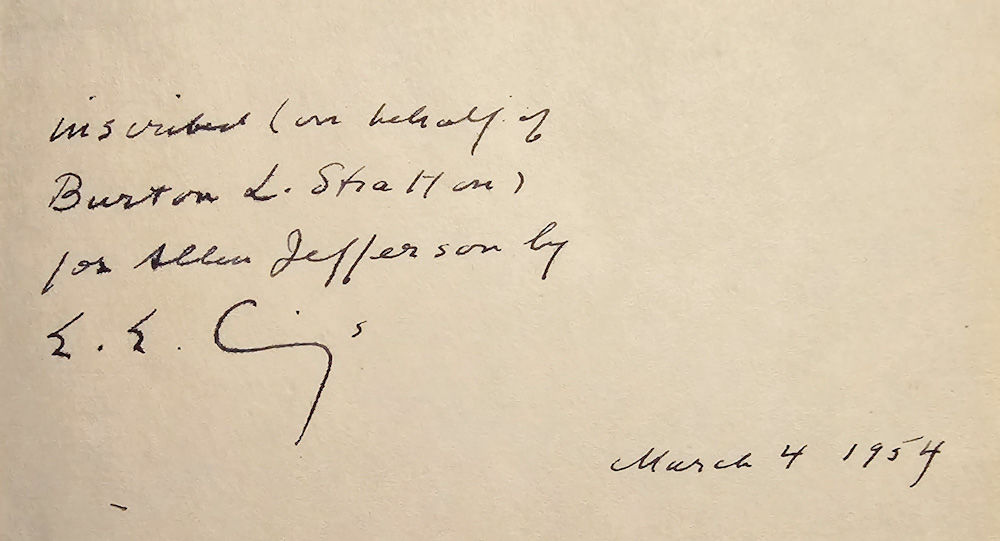 inscribed (on behalf of
Burton L. Stratton)
for Allen Jefferson by
E. E. Cummings
March 4 1954